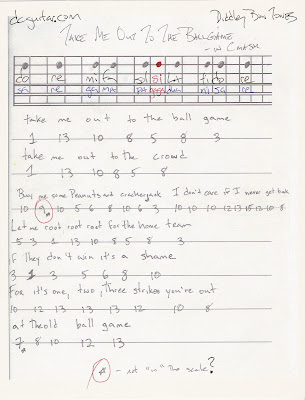 dcguitar.com
Diddley Bow Tunes
TAKE ME OUT TO THE BALLGAME
- W CMASK
do re mi fa sol si la ti do re
sa re ga ma pa dha ni sa re
take me out to the ball game
1 13 10 8 5 8 3
take me out to the crowd
1 13 10 8 5 8
Buy me some Peanuts and crackerjack I don't care if I never get back
10 9* 10 5 6 8 10 6 3 10 10 10 12 13 15 12 10 8
Let me root root root for the home team
5 3 1 13 10 8 5 8 3
if they don't win it's a shame
3 1 3 5 6 8 10
For it's one, two, Three strikes you're out
10 12 13 13 13 12 10 8
at the old ball game
7* 8 10 12 13
* - not "in" the scale?